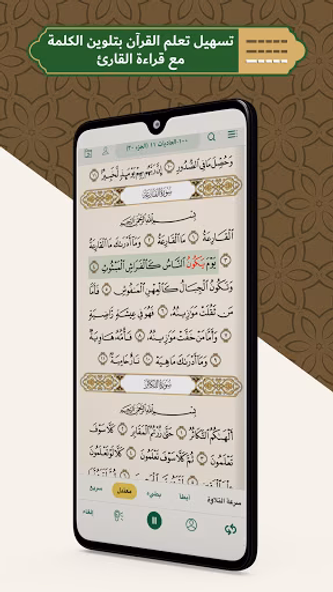 تسهيل تعلم القرآن بتلوين الكلمة
مع قراءة القارئ
١٠٠-العاديات ١١ (الجزء ٣٠)
وَحُصِّلَ مَا فِي ٱلصُّدُورِ ١٠ إِنَّ رَبَّهُم بِهِمۡ يَوۡمَئِذٖ لَّخَبِيرُۢ ١١
سُورَةُ القَارِعَةِ
بِسۡمِ ٱللَّهِ ٱلرَّحۡمَٰنِ ٱلرَّحِيمِ
ٱلۡقَارِعَةُ ١ مَا ٱلۡقَارِعَةُ ٢ وَمَآ أَدۡرَىٰكَ مَا ٱلۡقَارِعَةُ
٣ يَوۡمَ يَكُونُ ٱلنَّاسُ كَٱلۡفَرَاشِ ٱلۡمَبۡثُوثِ
٤ وَتَكُونُ ٱلۡجِبَالُ كَٱلۡعِهۡنِ ٱلۡمَنفُوشِ ٥ فَأَمَّا
مَن ثَقُلَتۡ مَوَٰزِينُهُۥ ٦ فَهُوَ فِي عِيشَةٖ رَّاضِيَةٖ
٧ وَأَمَّا مَنۡ خَفَّتۡ مَوَٰزِينُهُۥ ٨ فَأُمُّهُۥ هَاوِيَةٞ
٩ وَمَآ أَدۡرَىٰكَ مَا هِيَهۡ ١٠ نَارٌ حَامِيَةُۢ ١١
سُورَةُ التَّكَاثُرِ
بِسۡمِ ٱللَّهِ ٱلرَّحۡمَٰنِ ٱلرَّحِيمِ
أَلۡهَىٰكُمُ ٱلتَّكَاثُرُ ١ حَتَّىٰ زُرۡتُمُ ٱلۡمَقَابِرَ ٢ كَلَّا سَوۡفَ
تَعۡلَمُونَ ٣ ثُمَّ كَلَّا سَوۡفَ تَعۡلَمُونَ ٤ كَلَّا لَوۡ تَعۡلَمُونَ
سرعة التلاوة أبطأ بطيء معتدل سريع
إلغاء